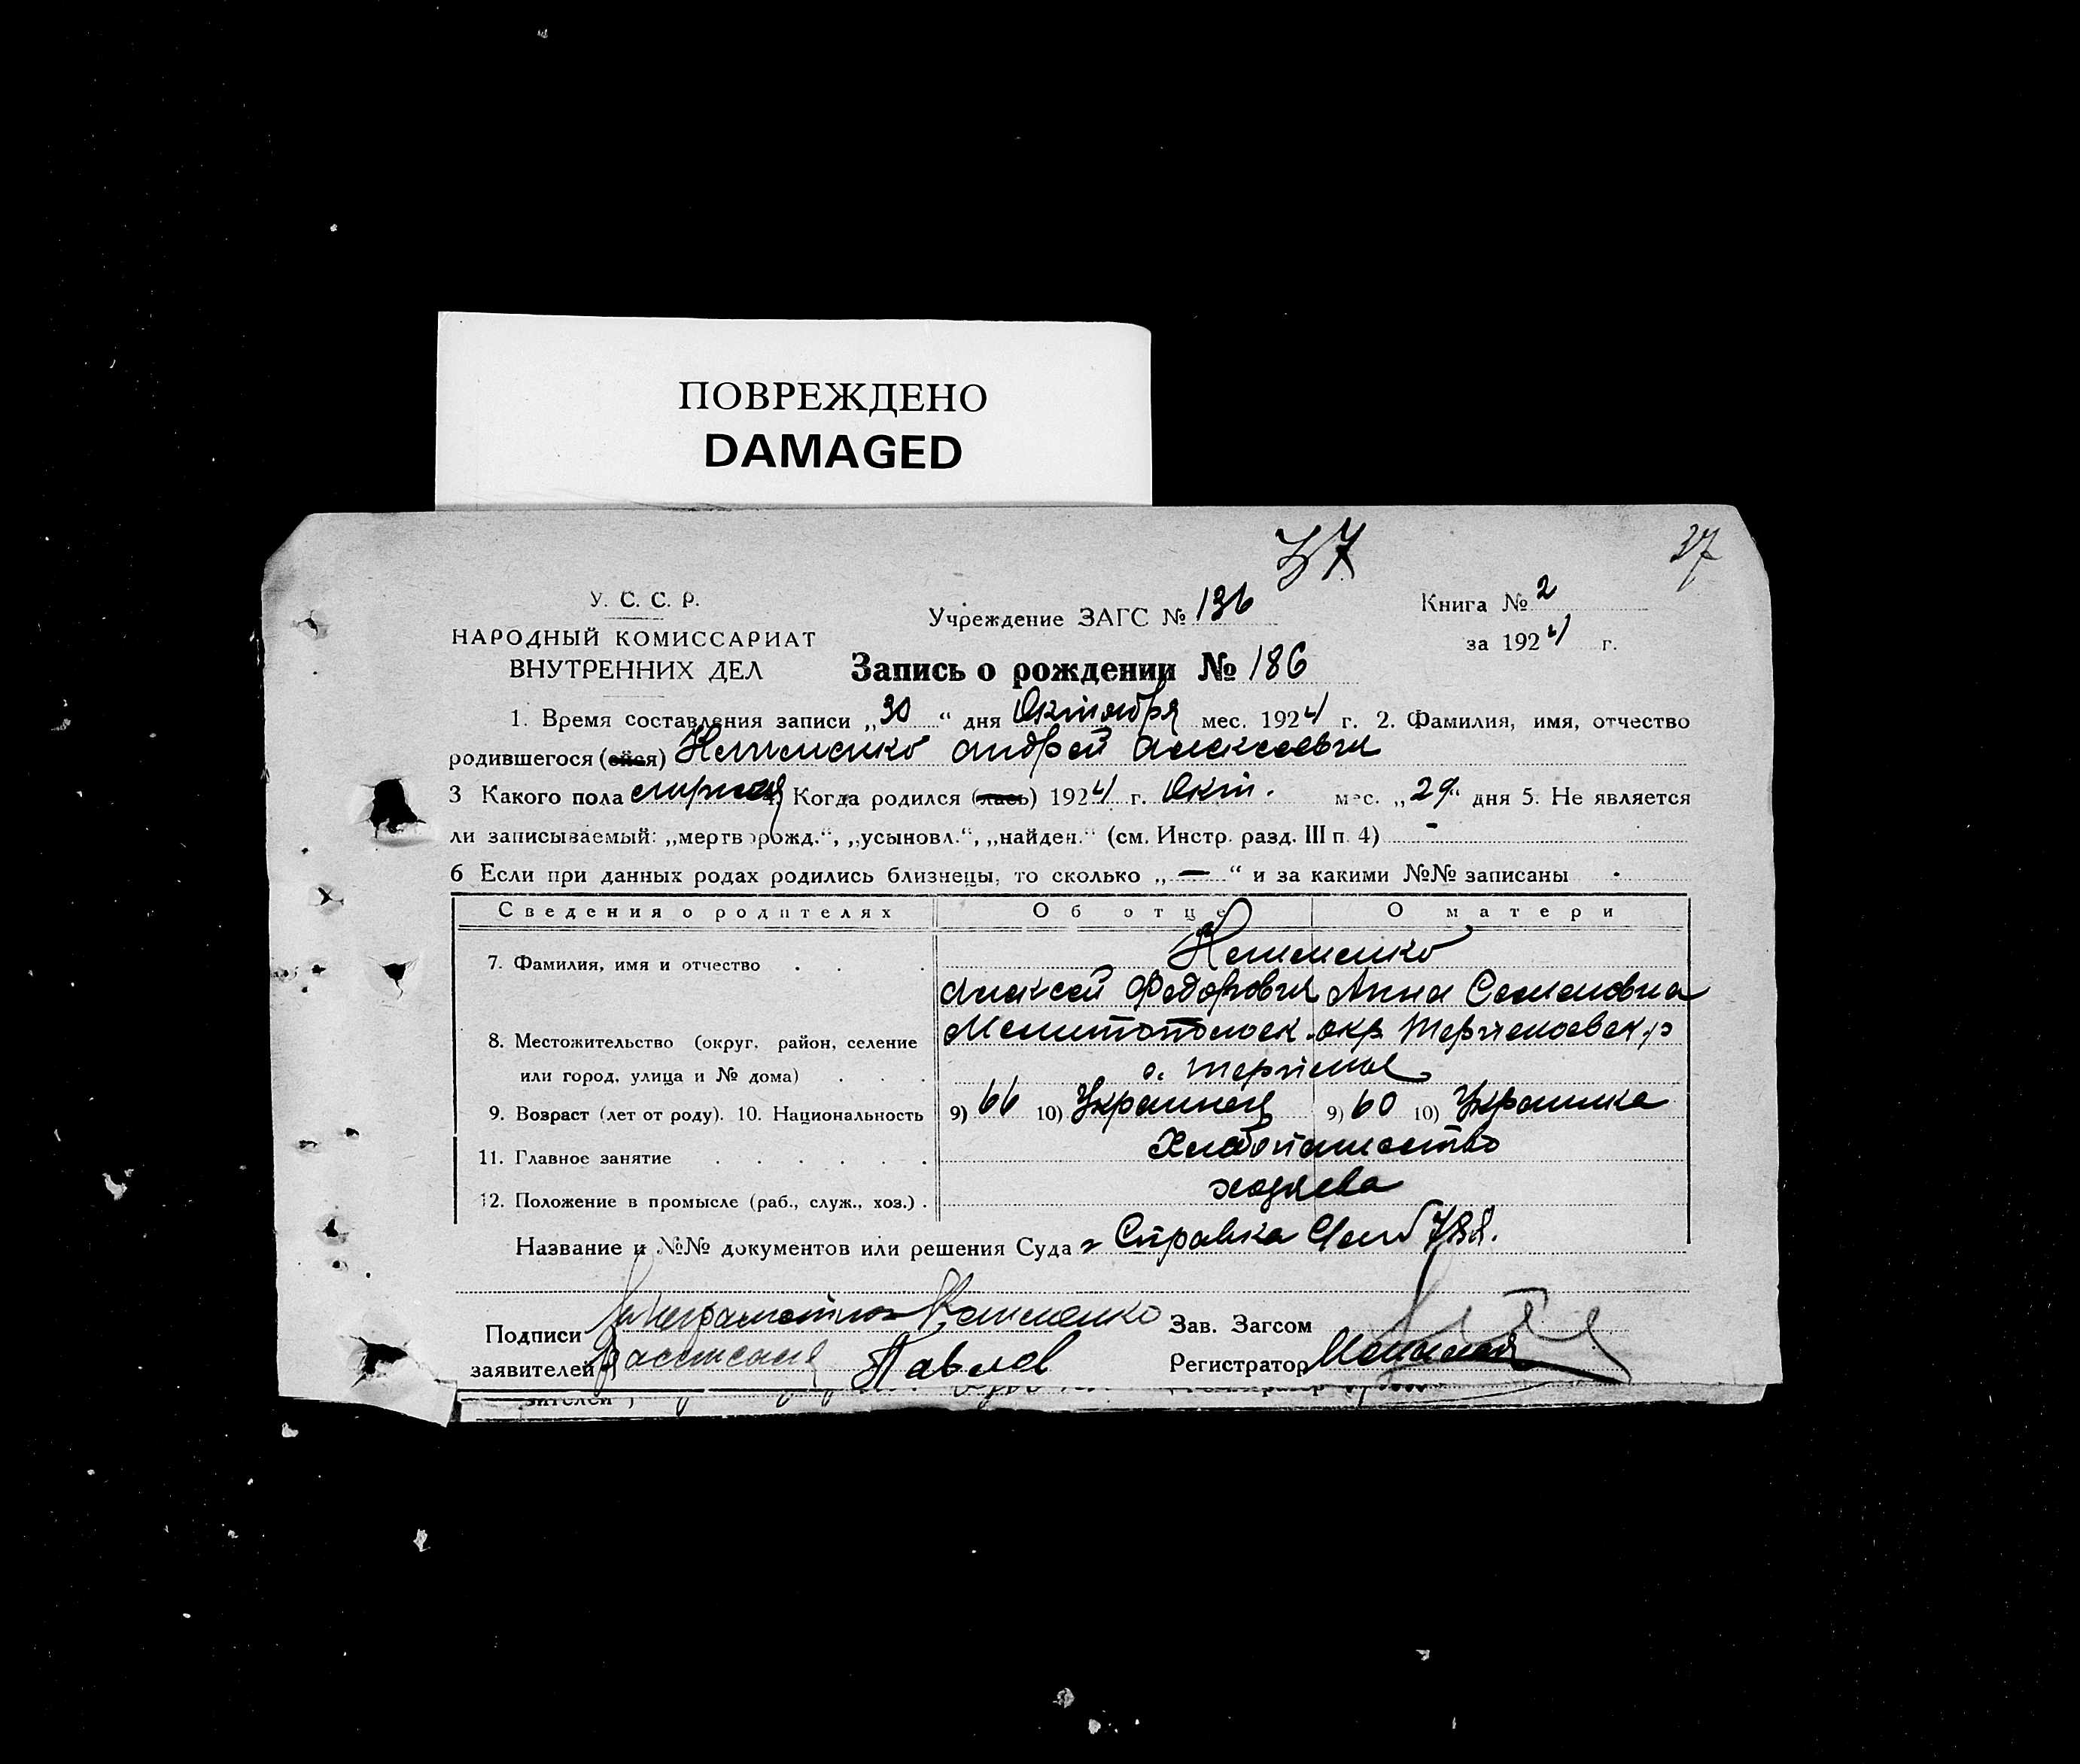 ПОВРЕЖДЕНО
DAMAGED
37
37
У. С. С. Р.
НАРОДНЫЙ КОМИССАРИАТ
ВНУТРЕННИХ ДЕЛ
Учреждение ЗАГС № 136
Книга № 2
за 1924 г.
Запись о рождении № 186
1. Время составления записи „30“ дня Октября мес. 1924 г. 2. Фамилия, имя, отчество
родившегося (ейся) Андрей Алексеевич
3 Какого пола 4. Когда родился (лась) 1924 г. Окт. мес. „29“ дня 5. Не является
ли записываемый: „мертворожд.“, „усыновл.“, „найден.“ (см. Инстр. разд. III п. 4) -
6 Если при данных родах родились близнецы, то сколько „—“ и за какими №№ записаны
Сведения о родителях Об отце О матери
7. Фамилия, имя и отчество
Алексей Федорович Анна Семеновна
8. Местожительство (округ, район, селение Мелитопольск. окр. Терпеновск. р
или город, улица и № дома) с. Терпение
9. Возраст (лет от роду). 10. Национальность 9) 66 10) Украинец 9) 60 10) Украинка
11. Главное занятие Хлебопашество
12. Положение в промысле (раб., служ., хоз.) хозяева
Название и №№ документов или решения Суда Справка 788.
Подписи неграмотного
заявителей Павлов
Зав. Загсом
Регистратор